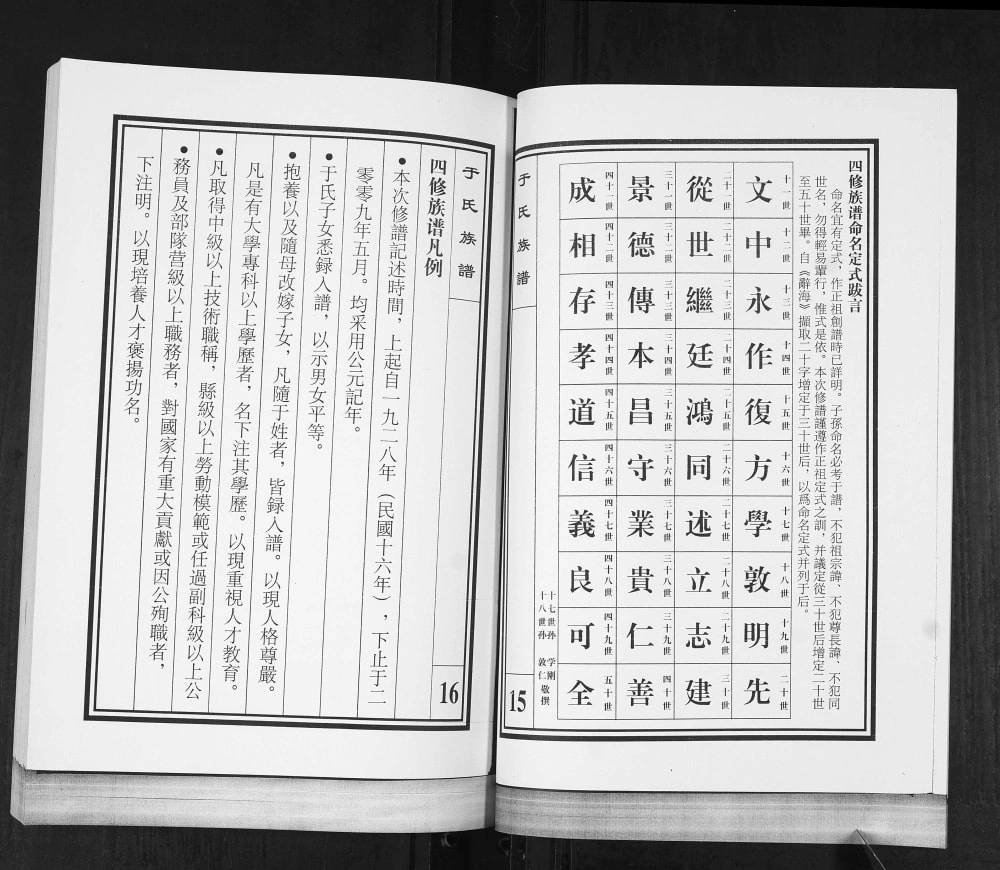 四修族谱命名定式跋言
命名宜有定式，作正祖創譜時已詳明。子孫命名必考于譜，不犯祖宗諱、不犯尊長諱、不犯同
世名，勿得輕易輩行，惟式是依。本次修譜謹遵作正祖定式之訓，并議定從三十世后增定二十世
至五十世畢。自《辭海》擷取二十字增定于三十世后，以爲命名定式并列于后。
十一世 文 十二世 中 十三世 永 十四世 作 十五世 復 十六世 方 十七世 學 十八世 敦 十九世 明 二十世 先
二十一世 從 二十二世 世 二十三世 繼 二十四世 廷 二十五世 鴻 二十六世 同 二十七世 述 二十八世 立 二十九世 志 三十世 建
三十一世 景 三十二世 德 三十三世 傳 三十四世 本 三十五世 昌 三十六世 守 三十七世 業 三十八世 貴 三十九世 仁 四十世 善
四十一世 成 四十二世 相 四十三世 存 四十四世 孝 四十五世 道 四十六世 信 四十七世 義 四十八世 良 四十九世 可 五十世 全
十七世孙 学剛
十八世孙 敦仁 敬撰
于氏族譜
15
于氏族譜
16
四修族谱凡例
●本次修譜記述時間，上起自一九二八年（民國十六年），下止于二
零零九年五月。均采用公元記年。
●于氏子女悉録入譜，以示男女平等。
●抱養以及隨母改嫁子女，凡隨于姓者，皆録入譜。以現人格尊嚴。
凡是有大學專科以上學歷者，名下注其學歷。以現重視人才教育。
●凡取得中級以上技術職稱，縣級以上勞動模範或任過副科級以上公
●務員及部隊营級以上職務者，對國家有重大貢獻或因公殉職者，
下注明。以現培養人才褒揚功名。